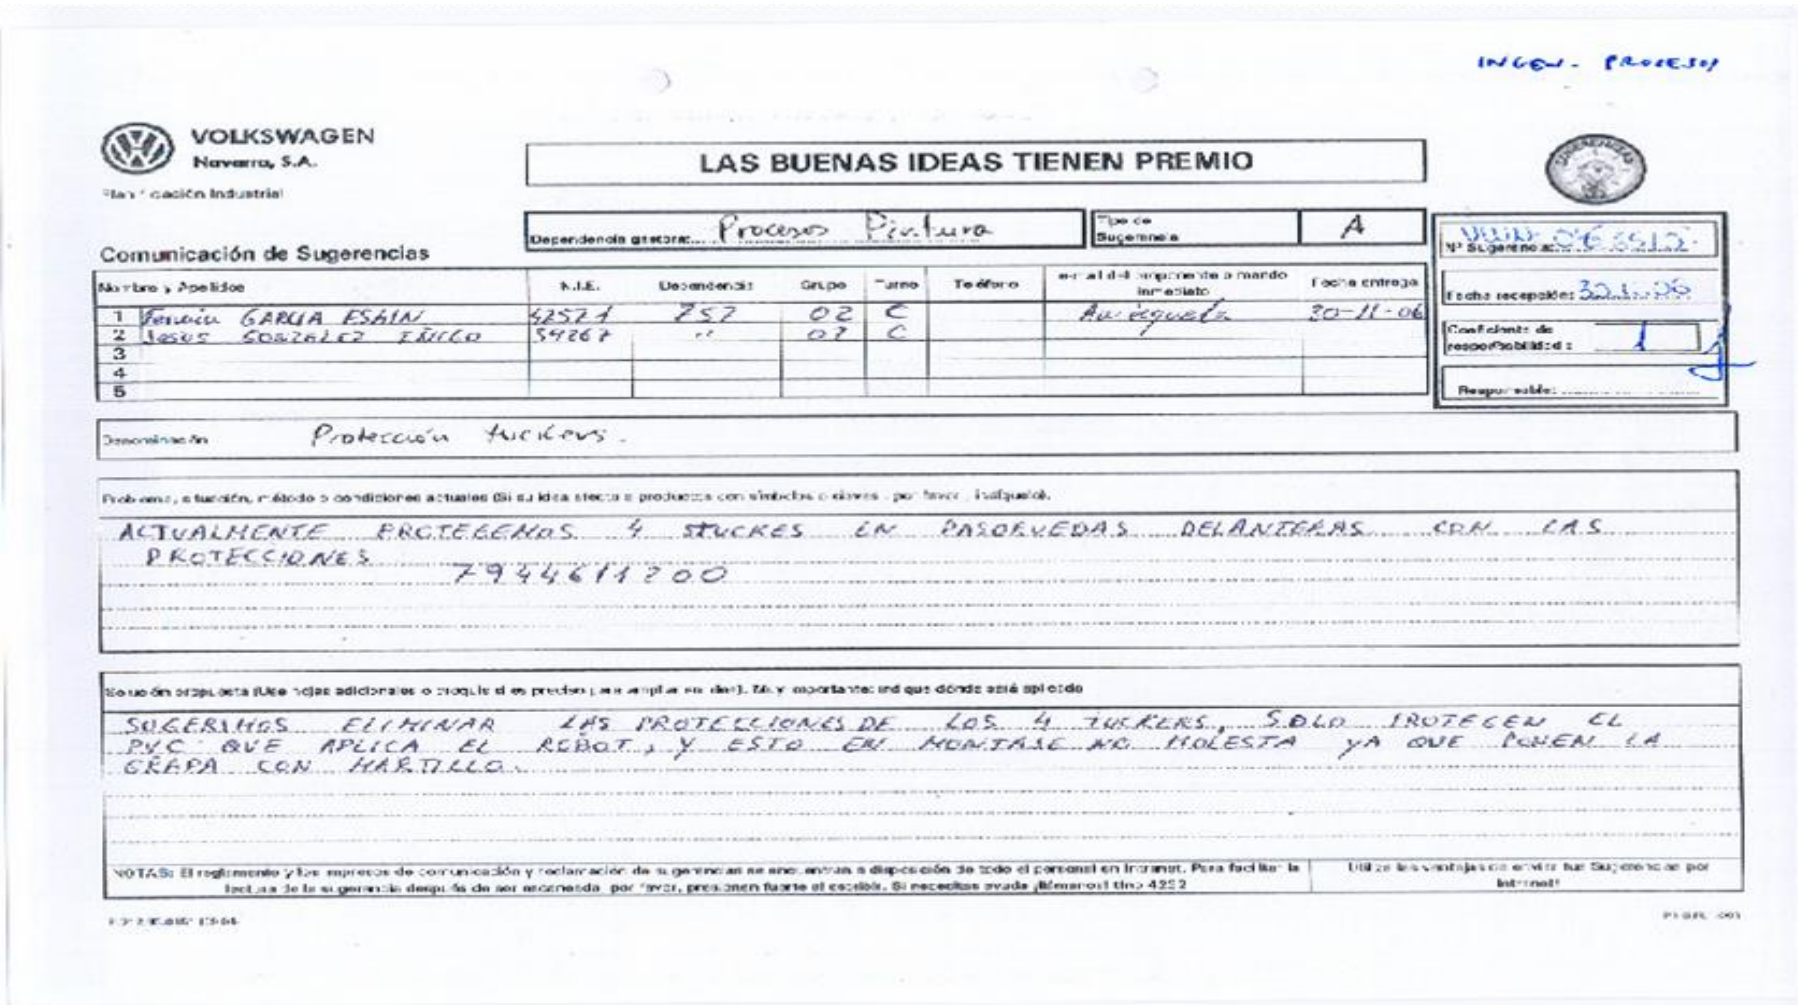 INGEN. PROCESOS
VOLKSWAGEN
Navarra, S.A.
Planificación Industrial
LAS BUENAS IDEAS TIENEN PREMIO
Dependencia gestora: Procesos Pintura
Tipo de Sugerencia A
Comunicación de Sugerencias
Nº Sugerencia:
Nombre y Apellidos N.I.E. Dependencia Grupo Turno Teléfono Fecha entrega
Fecha recepción:
1 GARCIA 02 C 30-11-06
2 Jesus GONZALEZ C
3
4
5
Coeficiente de responsabilidad: 1
Responsable:
Denominación Protección tuckers.
Problema, situación, método o condiciones actuales (Si su idea afecta a productos con símbolos o claves, por favor, indíquelo).
ACTUALMENTE PROTEGEMOS 4 STUCKES EN PASORUEDAS DELANTERAS CON LAS
PROTECCIONES
7944611200
Solución propuesta (Use hojas adicionales o croquis si es preciso para ampliar su idea). Muy importante: indique dónde está aplicado
SUGERIMOS ELIMINAR LAS PROTECCIONES DE LOS 4 TUCKERS, SOLO PROTEGEN EL
PVC QUE APLICA EL ROBOT, Y ESTO EN MONTAJE NO MOLESTA YA QUE PONEN LA
GRAPA CON MARTILLO.
NOTAS: El reglamento y los impresos de comunicación y reclamación de sugerencias se encuentran a disposición de todo el personal en Intranet. Para facilitar la
lectura de la sugerencia después de ser escaneada, por favor, presionen fuerte al escribir. Si necesitas ayuda ¡llámanos! tfno 4252
Utilize las ventajas de enviar tus Sugerencias por
Internet!